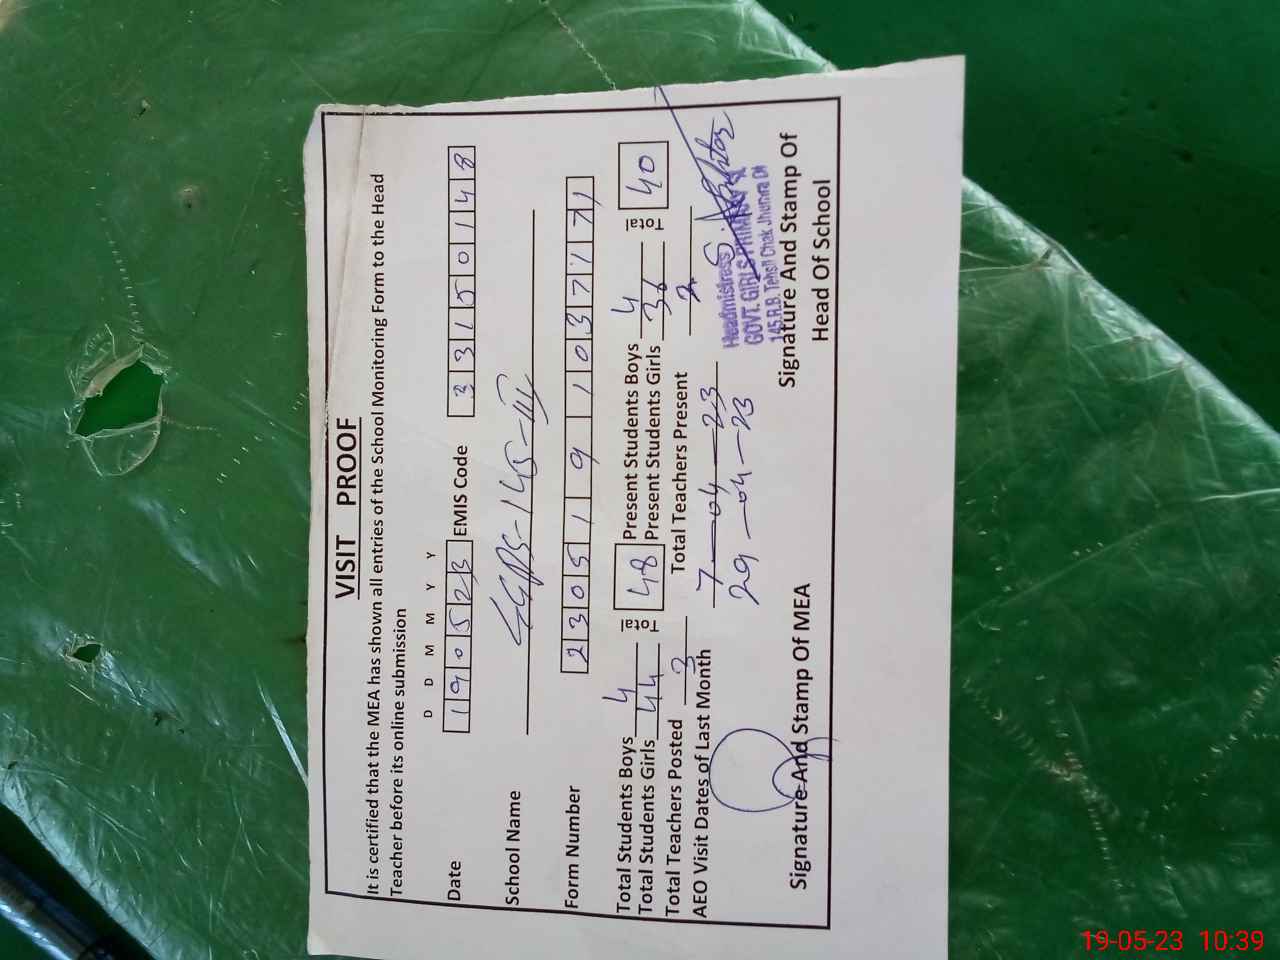 VISIT PROOF
It is certified that the MEA has shown all entries of the School Monitoring Form to the Head
Teacher before its online submission
D D M M Y Y
Date 190523 EMIS Code 33150148
School Name GGPS-145-III
Form Number 2305191037171
Total Students Boys 4 Total 48 Present Students Boys 4 Total 40
Total Students Girls 44 Present Students Girls 36
Total Teachers Posted 3 Total Teachers Present 2
AEO Visit Dates of Last Month 7-04-23
29-04-23
Headmistress
GOVT. GIRLS PRIMARY
145.R.B. Tehsil Chak Jhumra
Signature And Stamp Of MEA
Signature And Stamp Of
Head Of School
19-05-23 10:39